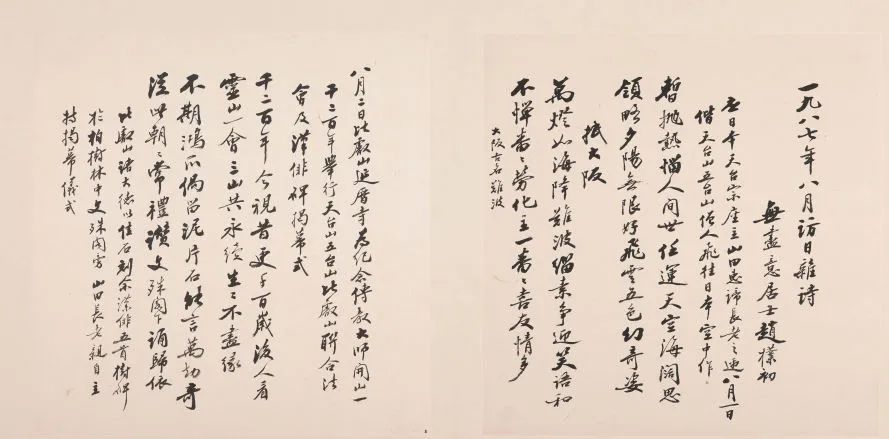 一九八七年八月訪日雜詩
無盡意居士趙樸初
應日本天台宗座主山田惠諦長老之邀八月一日
偕天台山五台山僧人飛往日本空中作
暫拋熱惱人間世任運天空海闊思
領略夕陽無限好飛雲五色幻奇姿
抵大阪
萬燈如海降難波緇素爭迎笑語和
不憚番番勞化主一番番喜友情多
大阪古名難波
八月二日比叡山延曆寺為紀念傳教大師開山一
千二百年舉行天台山五台山比叡山聯合法
會及漢俳碑揭幕式
千二百年今視昔更千百歲後人看
靈山一會三山共永續生生不盡緣
不期鴻爪偶留泥片石能言萬劫奇
從此朝朝常禮讚文殊閣下誦歸依
比叡山諸大德以佳石刻余漢俳五首樹碑
於柏樹林中文殊閣旁山田長老親自主
持揭幕儀式